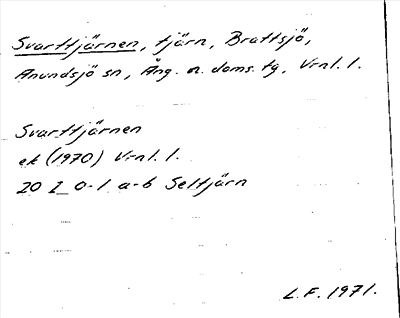 Svarttjärnen, tjärn, Brattsjö,
Anundsjö sn, Ång. n. doms. tg, Vrnl. l.
Svarttjärnen
ek (1970) Vrnl. l.
20 I 0-1 a-b Seltjärn
L.F. 1971.